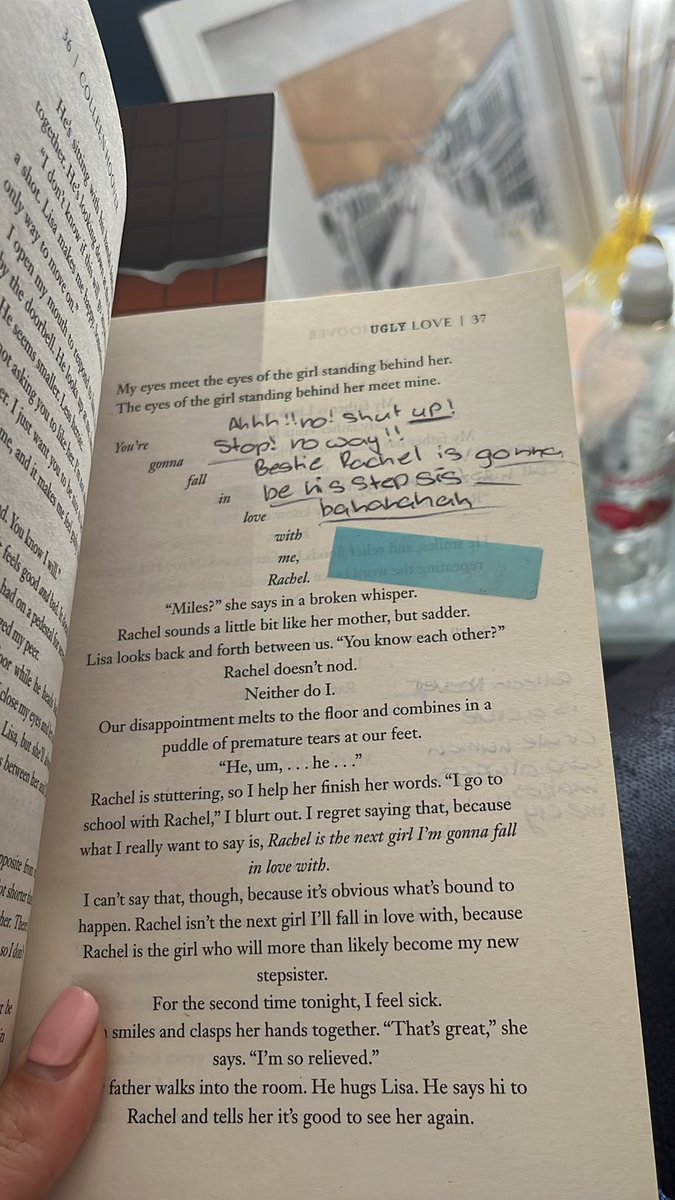 36 | COLLEEN HOOV
He's sitting with his
together. He's looking down
"I don't know if this will
a shot. Lisa makes me happy.
only way to move on."
I open my mouth to respond
by the doorbell. He looks up at
He seems smaller. Less heroic.
not asking you to like her, I'm
er. I just want you to be nice
me, and it makes me feel
d. You know I will."
feels good and bad.
had on a pedestal for
ved my peer.
oor while he heads
close my eyes and
Lisa, but she'll
s between her and
pposite from
ot shorter
her. There
so I don't
t be
in
UGLY LOVE | 37
My eyes meet the eyes of the girl standing behind her.
The eyes of the girl standing behind her meet mine.
Ahhh!! no! shut up!
Stop! no way!!
Bestie Rachel is gonna
be his step sis
bahahahah
You're
gonna
fall
in
love
with
me,
Rachel.
"Miles?" she says in a broken whisper.
Rachel sounds a little bit like her mother, but sadder.
Lisa looks back and forth between us. "You know each other?"
Rachel doesn't nod.
Neither do I.
Our disappointment melts to the floor and combines in a
puddle of premature tears at our feet.
"He, um, . . . he . . ."
Rachel is stuttering, so I help her finish her words. "I go to
school with Rachel," I blurt out. I regret saying that, because
what I really want to say is, Rachel is the next girl I'm gonna fall
in love with.
I can't say that, though, because it's obvious what's bound to
happen. Rachel isn't the next girl I'll fall in love with, because
Rachel is the girl who will more than likely become my new
stepsister.
For the second time tonight, I feel sick.
smiles and clasps her hands together. "That's great," she
says. "I'm so relieved."
father walks into the room. He hugs Lisa. He says hi to
Rachel and tells her it's good to see her again.